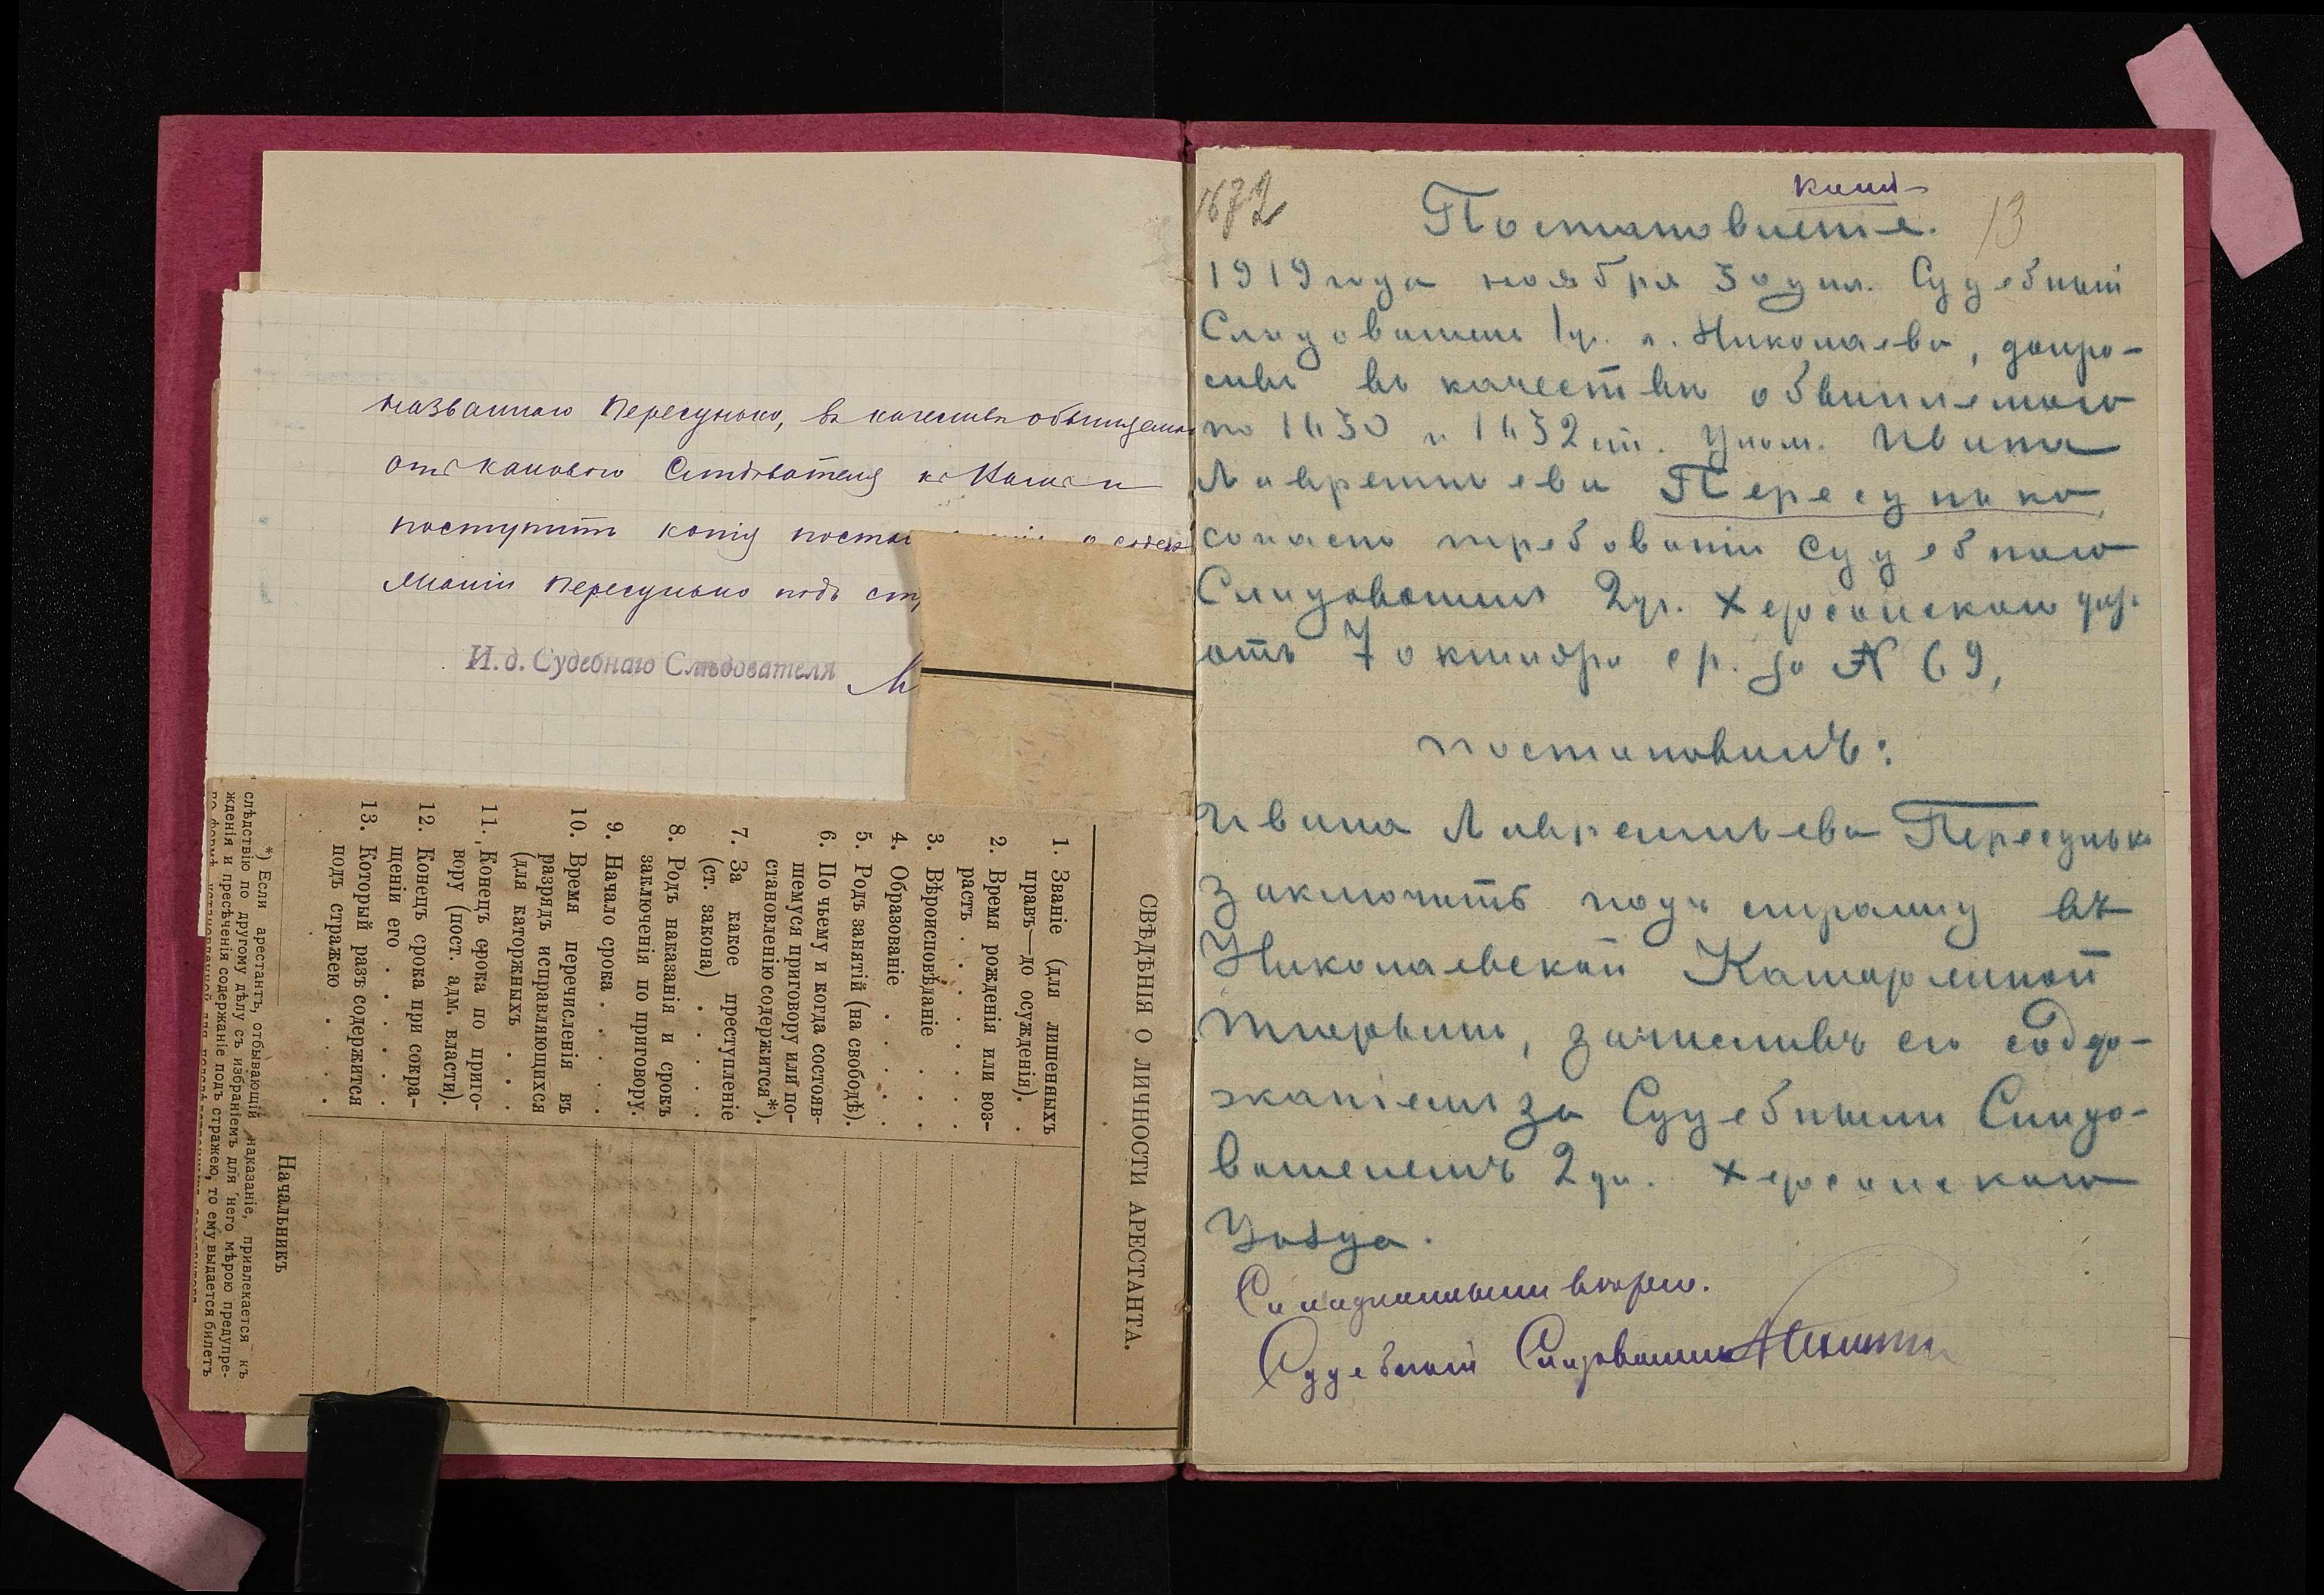 названнаго Пересунько, въ качествѣ обвиняемаго
отъ какового Слѣдователя къ Вамъ и
поступитъ копія поста
о содер
жаніи Пересунько подъ ст
И. д. Судебнаго Слѣдователя
СВѢДѢНІЯ О ЛИЧНОСТИ АРЕСТАНТА.
1. Званіе (для лишенныхъ
правъ—до осужденія).
2. Время рожденія или воз-
растъ
3. Вѣроисповѣданіе
4. Образованіе
5. Родъ занятій (на свободѣ).
6. По чьему и когда состояв-
шемуся приговору или по-
становленію содержится*).
7. За какое преступленіе
(ст. закона)
8. Родъ наказанія и срокъ
заключенія по приговору.
9. Начало срока
10. Время перечисленія въ
разрядъ исправляющихся
(для каторжныхъ
11. Конецъ срока по приго-
вору (пост. адм. власти).
12. Конецъ срока при сокра-
щеніи его
13. Который разъ содержится
подъ стражею
Начальникъ
*) Если арестантъ, отбывающій наказаніе, привлекается къ
слѣдствію по другому дѣлу съ избраніемъ для него мѣрою предупре-
жденія и пресѣченія содержаніе подъ стражею, то ему выдается билетъ
1672
копія
13
Постановленіе.
1919 года ноября 5 дня. Судебный
Слѣдователь 1 уч. г. Николаева, допро-
сивъ въ качествѣ обвиняемаго
по 1630 и 1632 ст. Улож. Ивана
Лаврентьева Пересунько,
согласно требованія Судебнаго
Слѣдователя 2 уч. Херсонскаго уѣз.
отъ 7 октября с. г. за № 69,
постановилъ:
Ивана Лаврентьева Пересунько
заключить подъ стражу въ
Николаевской Каторжной
тюрьмѣ, зачисливъ его содер-
жаніемъ за Судебнымъ Слѣдо-
вателемъ 2 уч. Херсонскаго
Уѣзда.
Съ подлиннымъ вѣрно.
Судебный Слѣдователь